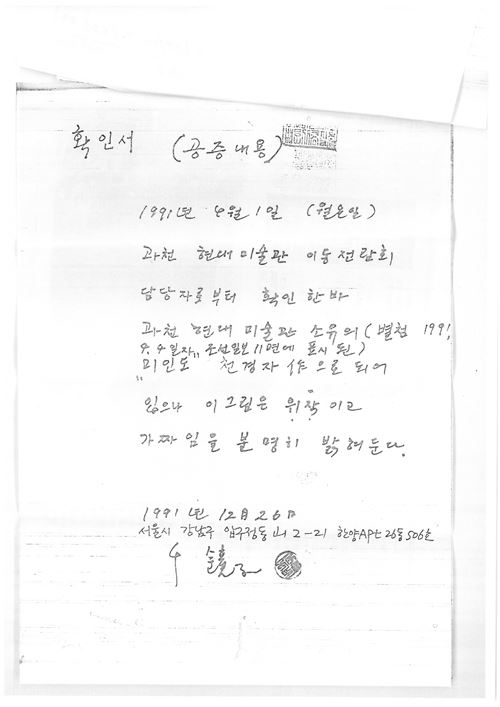 확인서 (공증내용)
1991년 4월 1일 (월요일)
과천 현대미술관 이동전람회
담당자로부터 확인한바
과천 현대 미술관 소유의 (별첨 1991.
4.4일자 조선일보 11면에 표시 된)
"미인도" 천경자 作으로 되어
있으나 이그림은 위작이고
가짜임을 분명히 밝혀둔다.
1991년 12月 26日
서울시 강남구 압구정동 山 2-21 한양APt 26동 506호